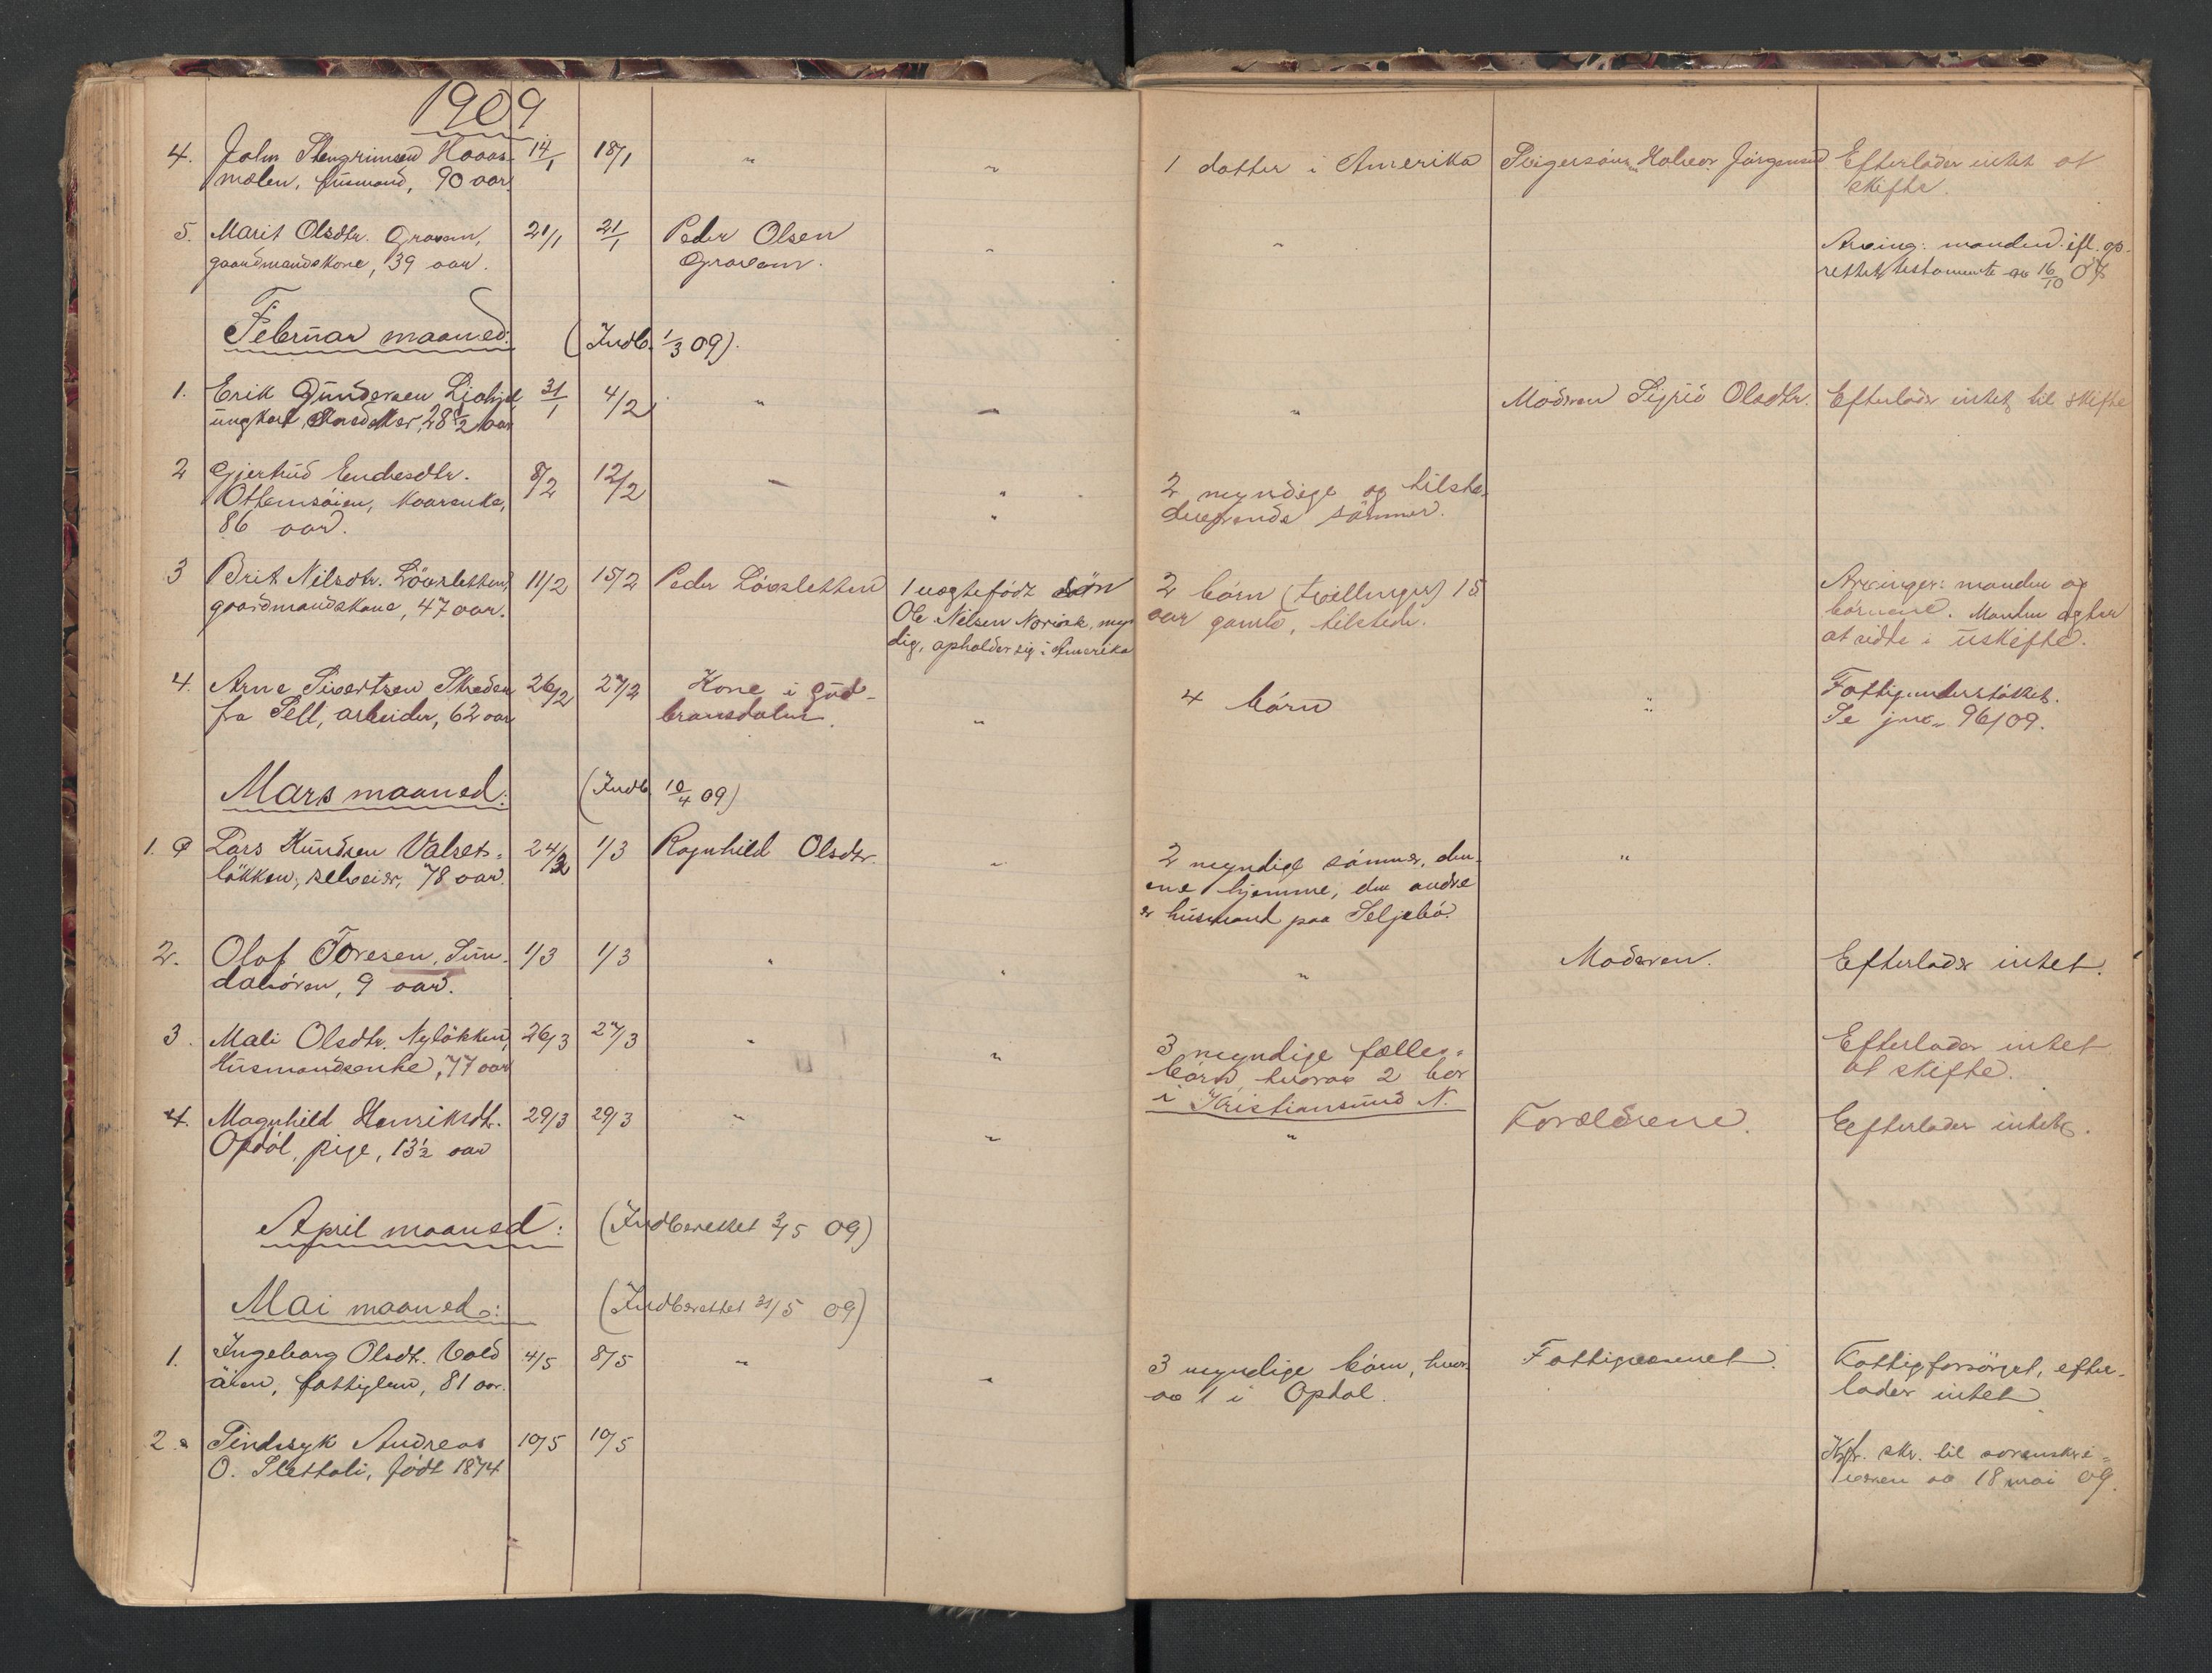 1909
4. John Stengrimsen Hoaas- 14/1 18/1 " " 1 datter i Amerika Svigersønn Halvor Jörgensen Efterlader intet at
mælen, husmand, 90 aar. skifte.
5. Marit Olsdtr. Gravem, 21/1 21/1 Peder Olsen " " Arving: manden ifl. op-
gaardmandskone, 39 aar. Gravem. rettet testamente av 16/10 07
Februar maaned: (Indb. 1/3 09).
1. Erik Gundersen 31/1 4/2 " " " Moderen Sigrid Olsdtr. Efterlader intet til skifte
ungkar, 28 1/2 aar
2 Gjertrud Endresdtr. 8/2 12/2 " " 2 myndige og tilste-
Ottemsöien, kaarenke, deværende sønner.
86 aar. "
3 Brit Nilsdtr. Lövsletten, 11/2 15/2 Peder Lövsletten 1 uægtefödt sön 2 börn (tvillinger) 15 Arvinger: manden og
gaardmandskone, 47 aar. Ole Nilsen Norvik, myn- aar gamle, tilstede. börnene. Manden agter
dig, opholder sig i Amerika at sidde i uskifte.
4. Arne Sivertsen 26/2 27/2 Kone i Gud- " 4 börn " Fattigunderstöttet.
fra Sell, arbeider, 62 aar bransdalen. Se jnr. 96/09.
Mars maaned: (Indb. 10/4 09)
1. Lars Knudsen Valset- 24/2 1/3 Ragnhild Olsdtr. " 2 myndige sönner, den "
lökken, selveier, 78 aar. ene hjemme, den andre
er husmand paa Seljebö.
2. Olaf Toresen, Sun- 1/3 1/3 " " " Moderen. Efterlader intet.
dalsören, 9 aar.
3. Mali Olsdtr. Nylökken, 26/3 27/3 " " 3 myndige fælles- Efterlader intet
Husmandsenke, 77 aar börn, hvorav 2 bor at skifte.
i Kristiansund N.
4. Magnhild Henriksdtr. 29/3 29/3 " " " Forældrene. Efterlader intet.
Opdöl, pige, 13 1/2 aar
April maaned: (Indberettet 3/5 09)
Mai maaned: (Indberettet 31/5 09)
1. Ingeborg Olsdtr. Vold 4/5 8/5 " " 3 myndige börn, hvor- Fattigvæsenet. Fattigforsörget, efter-
öien, fattiglem, 81 aar. av 1 i Opdal. lader intet
2. Sindssyk Andreas 10/5 10/5 Kfr. skr. til sorenskri-
O. Slettoli, födt 1874 veren av 18 mai 09.